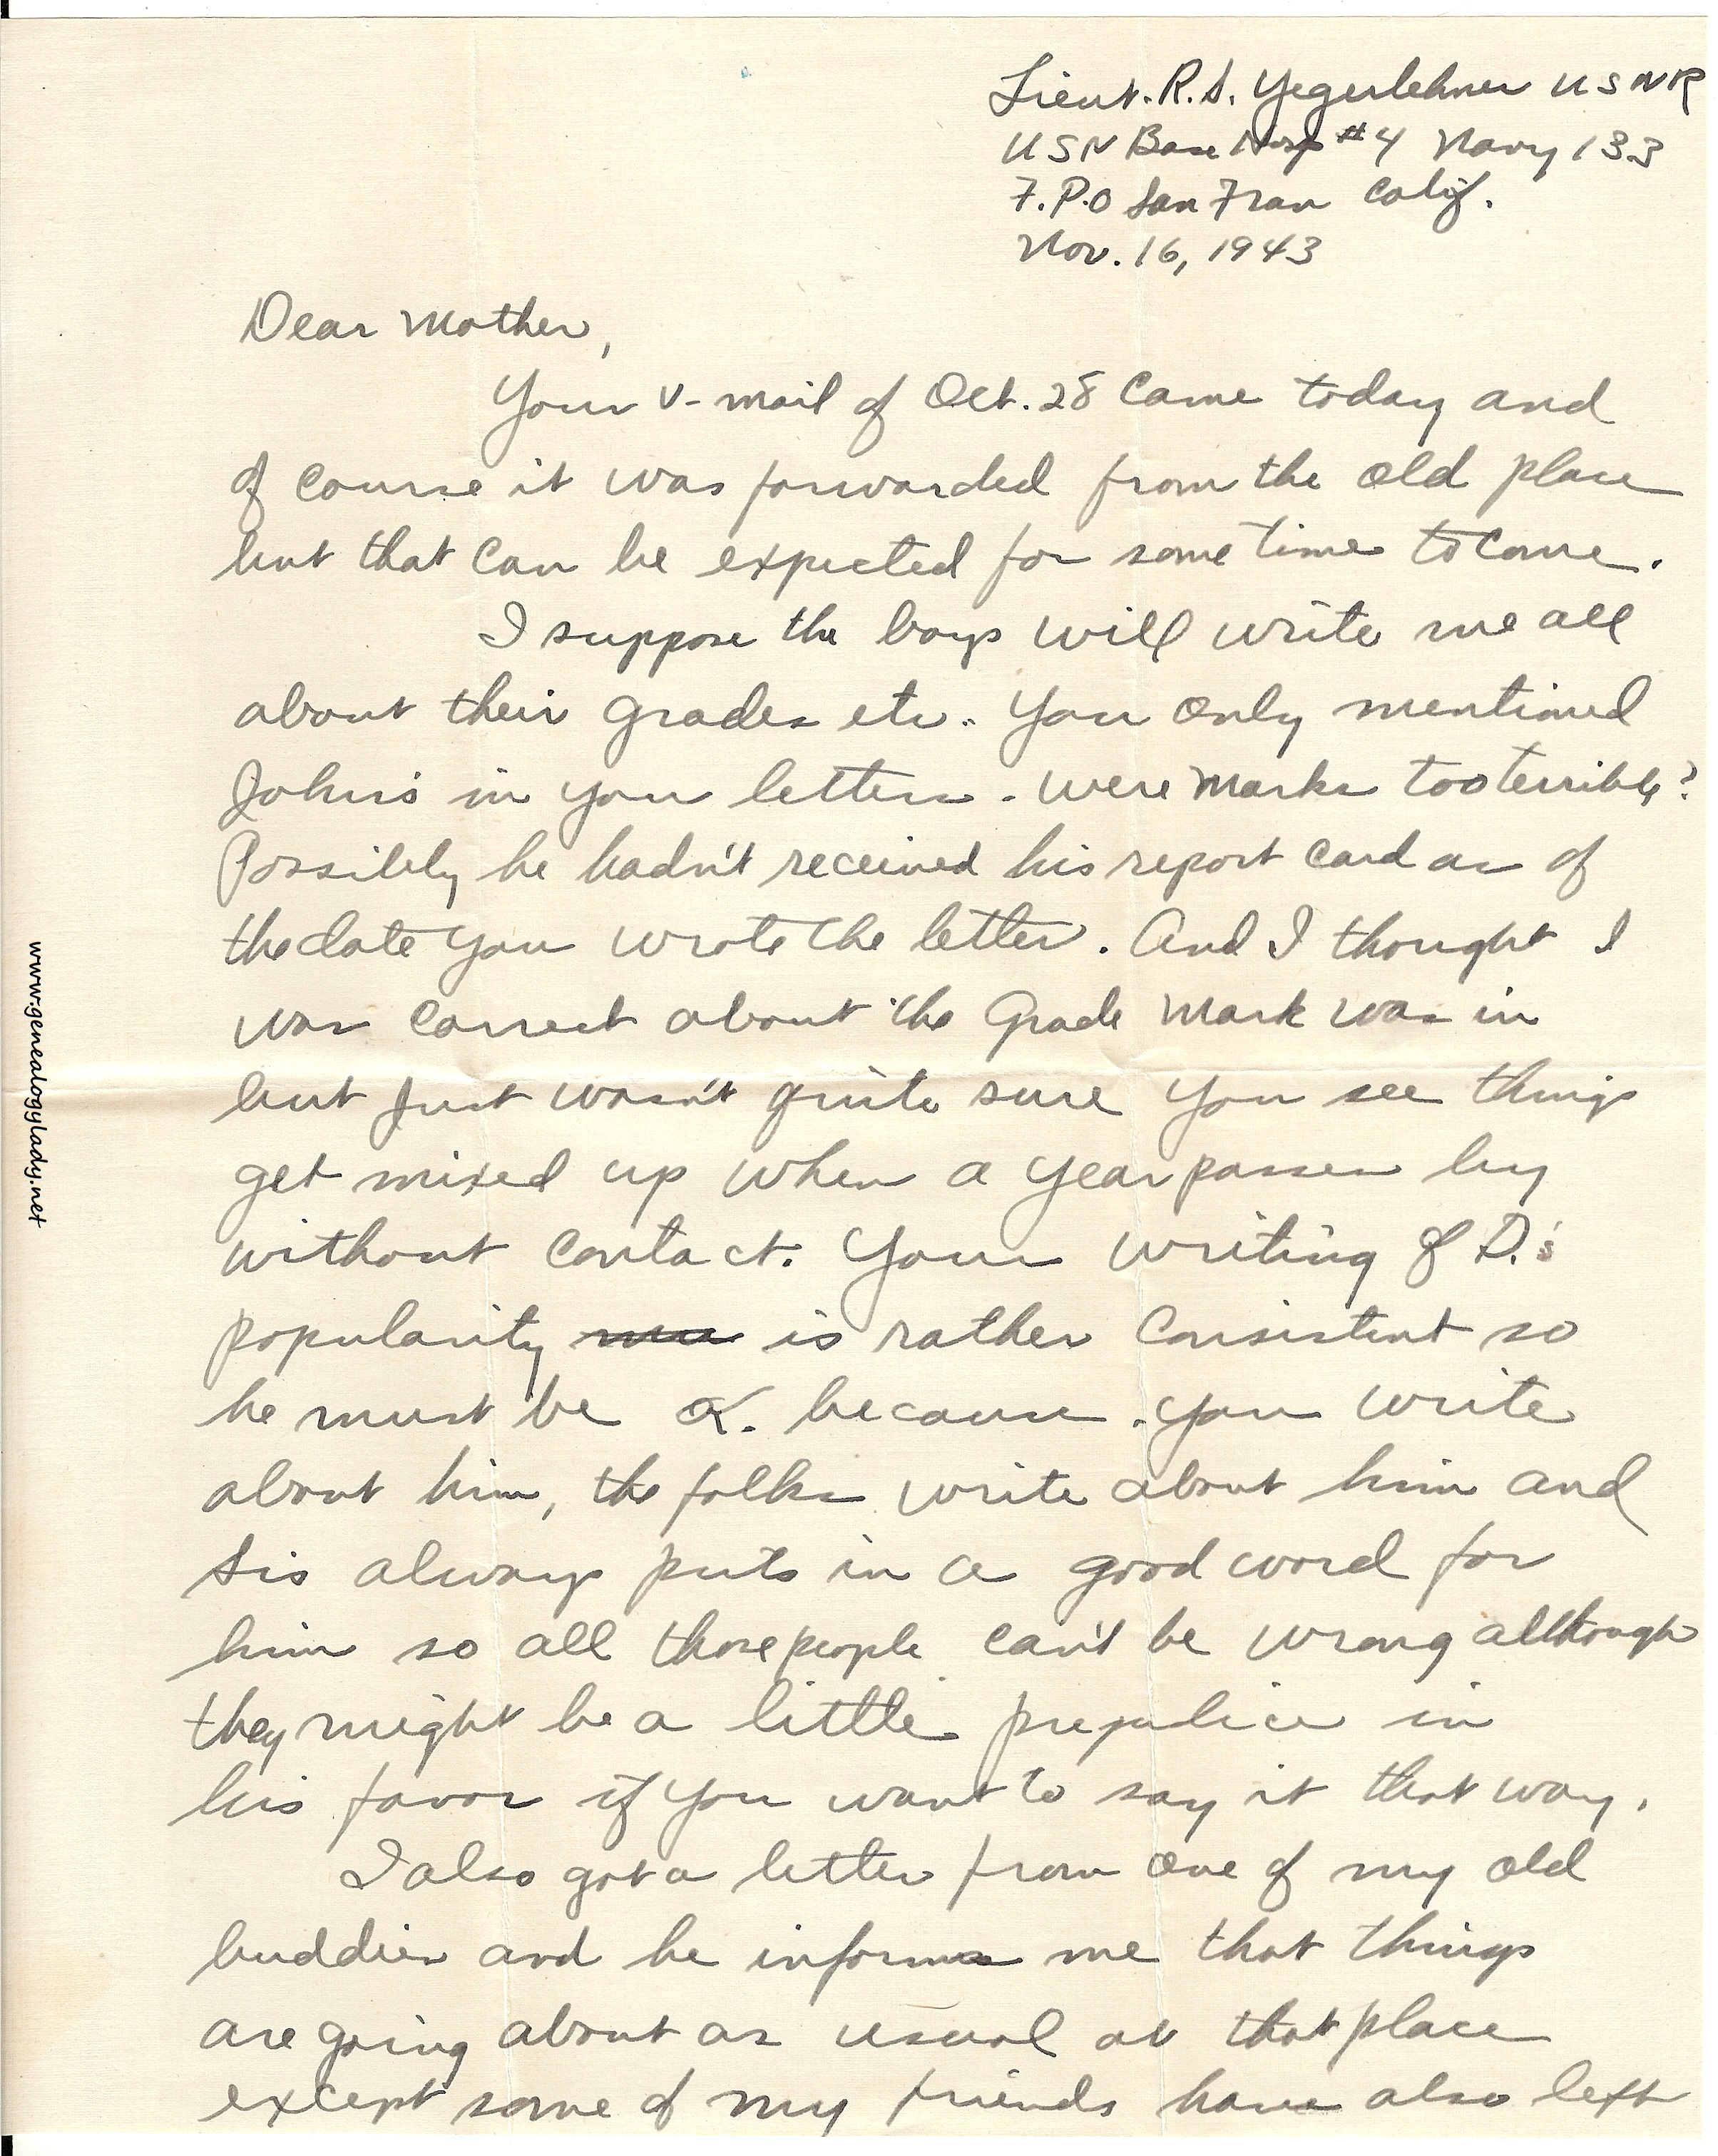 Lieut. R. S. Yegerlehner USNR
USN Base Hosp #4 Navy 133
F.P.O San Fran Calif.
Nov. 16, 1943
Dear Mother,
Your V-mail of Oct. 28 came today and
of course it was forwarded from the old place
but that can be expected for some time to come.
I suppose the boys will write me all
about their grades etc. You only mentioned
John's in your letter. Were Marks too terrible?
Possibly he hadn't received his report card as of
the date you wrote the letter. And I thought I
was correct about the Grade Mark was in
but just wasn't quite sure you see things
get mixed up when a year passes by
without contact. Your writing of D.'s
popularity is rather consistent so
he must be O.K. because you write
about him, the folks write about him and
Sis always puts in a good word for
him so all those people can't be wrong although
they might be a little prejudice in
his favor if you want to say it that way.
I also got a letter from one of my old
buddies and he informs me that things
are going about as usual at that place
except some of my friends have also left
www.genealogylady.net